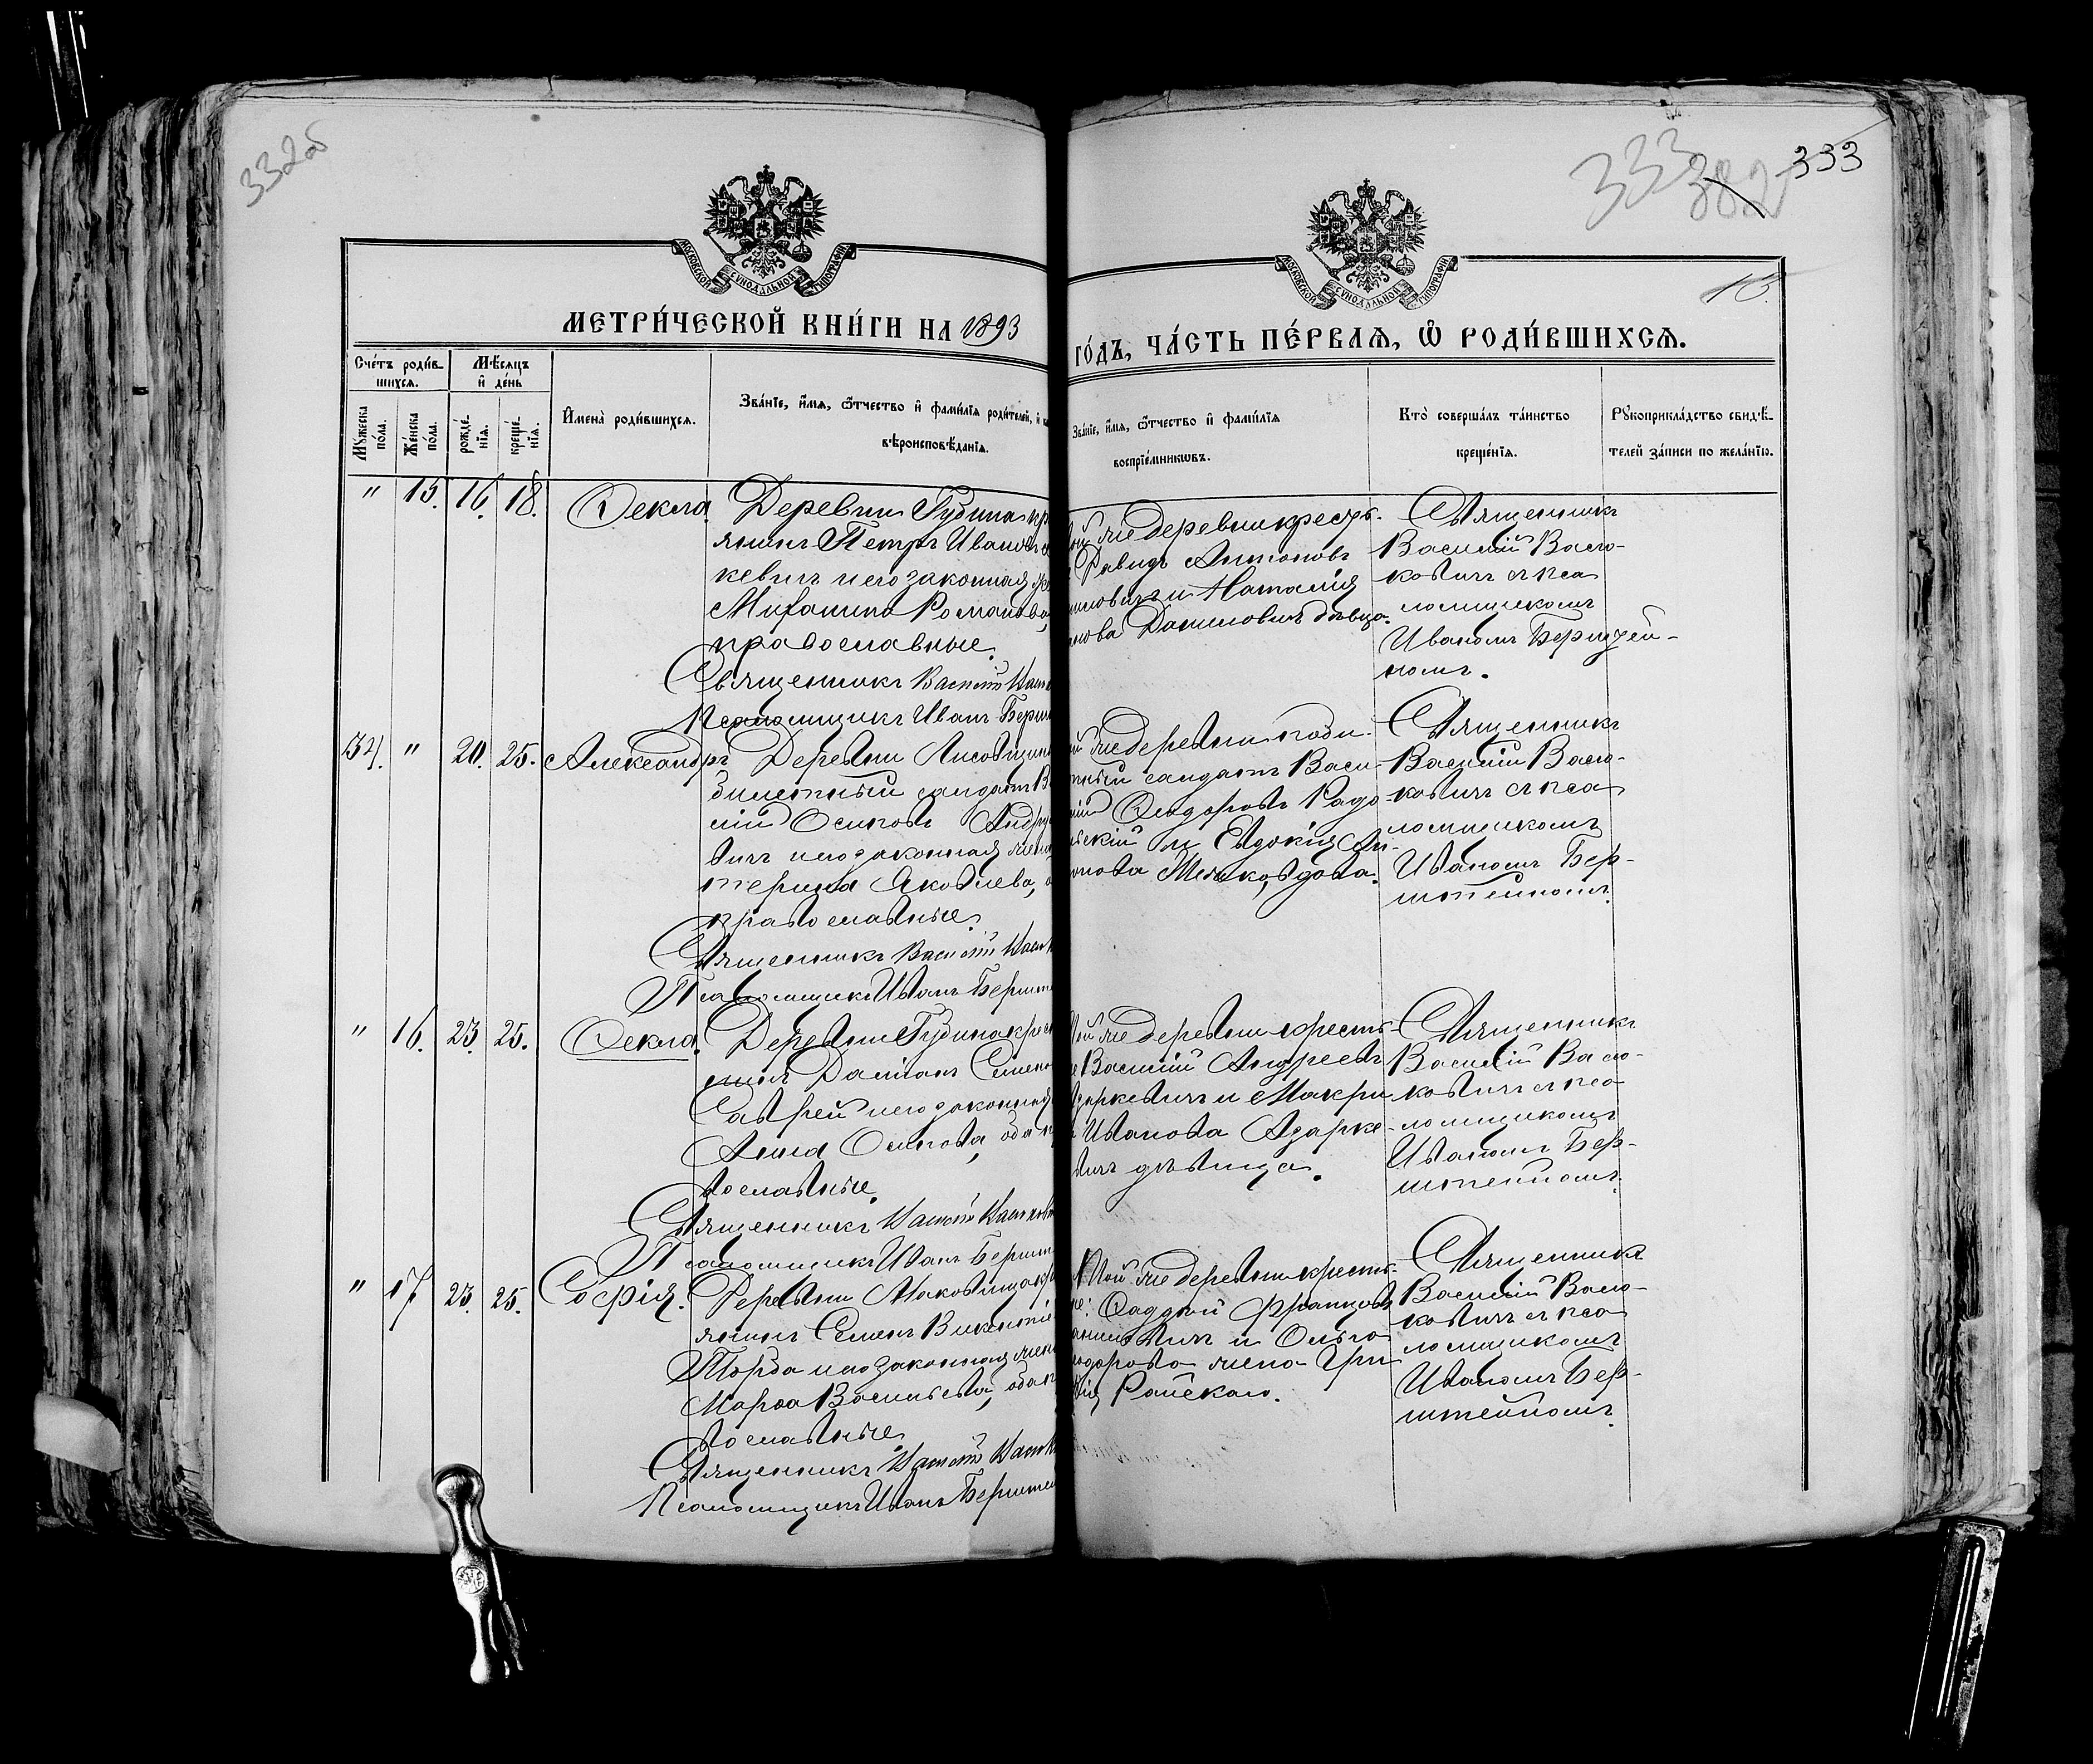 332об
333 382 333
МОСКОВСКОЙ СѴНОДАЛЬНОЙ ТИПОГРАФІИ
МОСКОВСКОЙ СѴНОДАЛЬНОЙ ТИПОГРАФІИ
10.
МЕТРИ́ЧЕСКОЙ КНИ́ГИ НА 1893
ГО́ДЪ, ЧА́СТЬ ПЕ́РВАЯ, Ѡ҆ РОДИ́ВШИХСЯ.
Сче́тъ роди́в-
шихся.
Мꙋжеска по́ла.
Же́нска по́ла.
Мѣ́сяцъ
и҆ де́нь
рожде́-
нїя.
креще́-
нїя.
И҆мена̀ роди́вшихся.
Зва́нїе, и҆́мя, ѻ҆́тчество и҆ фами́лїя роди́телей, и҆
вѣроисповѣ́данїя.
Зва́нїе, и҆́мя, ѻ҆́тчество и҆ фами́лїя
воспрїе́мникωвъ.
Кто̀ соверша́лъ та́инство
креще́нїя.
Рꙋкоприкла́дство свидѣ́-
телей за́писи по жела́нїю.
" 15. 16. 18. Ѳекла.
Деревни Гудина кр
янинъ Петръ Ивановъ
кевичъ и его законная же
Митанина Романова,
православные.
Священникъ Василій Васю
Псаломщикъ Иванъ Бернш
ой же деревни кресть-
Давидъ Антоновъ
иловичъ и Наталія
нова Даниловичъ дѣвица.
Священникъ
Василій Васю-
ковичъ съ пса
ломщикомъ
Иваномъ Бернштей-
номъ.
34. " 20. 25. Александръ
Деревни Лисовщин
билетный солдатъ В
лій Осиповъ Андру
вичъ и его законная жена
терина Яковлева, о
православные.
Священникъ Василій Васю
Псаломщикъ Иванъ Бернште
й же деревни и οби
тный солдатъ Васи-
лій Ѳедоровъ Радо-
вскій и Евдокія Ан-
онова Шешко, вдова.
Священникъ
Василій Васю-
ковичъ съ пса
ломщикомъ
Иваномъ Бер-
штейномъ.
" 16. 23. 25. Ѳекла.
Деревни Гудина крест
янинъ Даміанъ Семено
Саврей и его законная
Анна Осипова, оба п
вославные.
Священникъ Василій Васюков
Псаломщикъ Иванъ Бернште
той же деревни кресть-
е Василій Андреевъ
Адаркевичъ и Макри
Иванова Адарке-
вичъ дѣвица.
Священникъ
Василій Васю-
ковичъ съ пса
ломщикомъ
Иваномъ Бер-
штейномъ.
" 17 23. 25. Софія.
Деревни Маковища кр
янинъ Семенъ Викентіе
Торба и его законная жен
Марѳа Васильева, оба п
вославные.
Священникъ Василій Васюк
Псаломщикъ Иванъ Берштей
той же деревни кресть-
не: Ѳаддей Францовъ
ович и Ольга
одорова жена Гри
рія Райскаго.
Священникъ
Василій Васю-
ковичъ съ пса
ломщикомъ
Иваномъ Бер-
штейномъ.